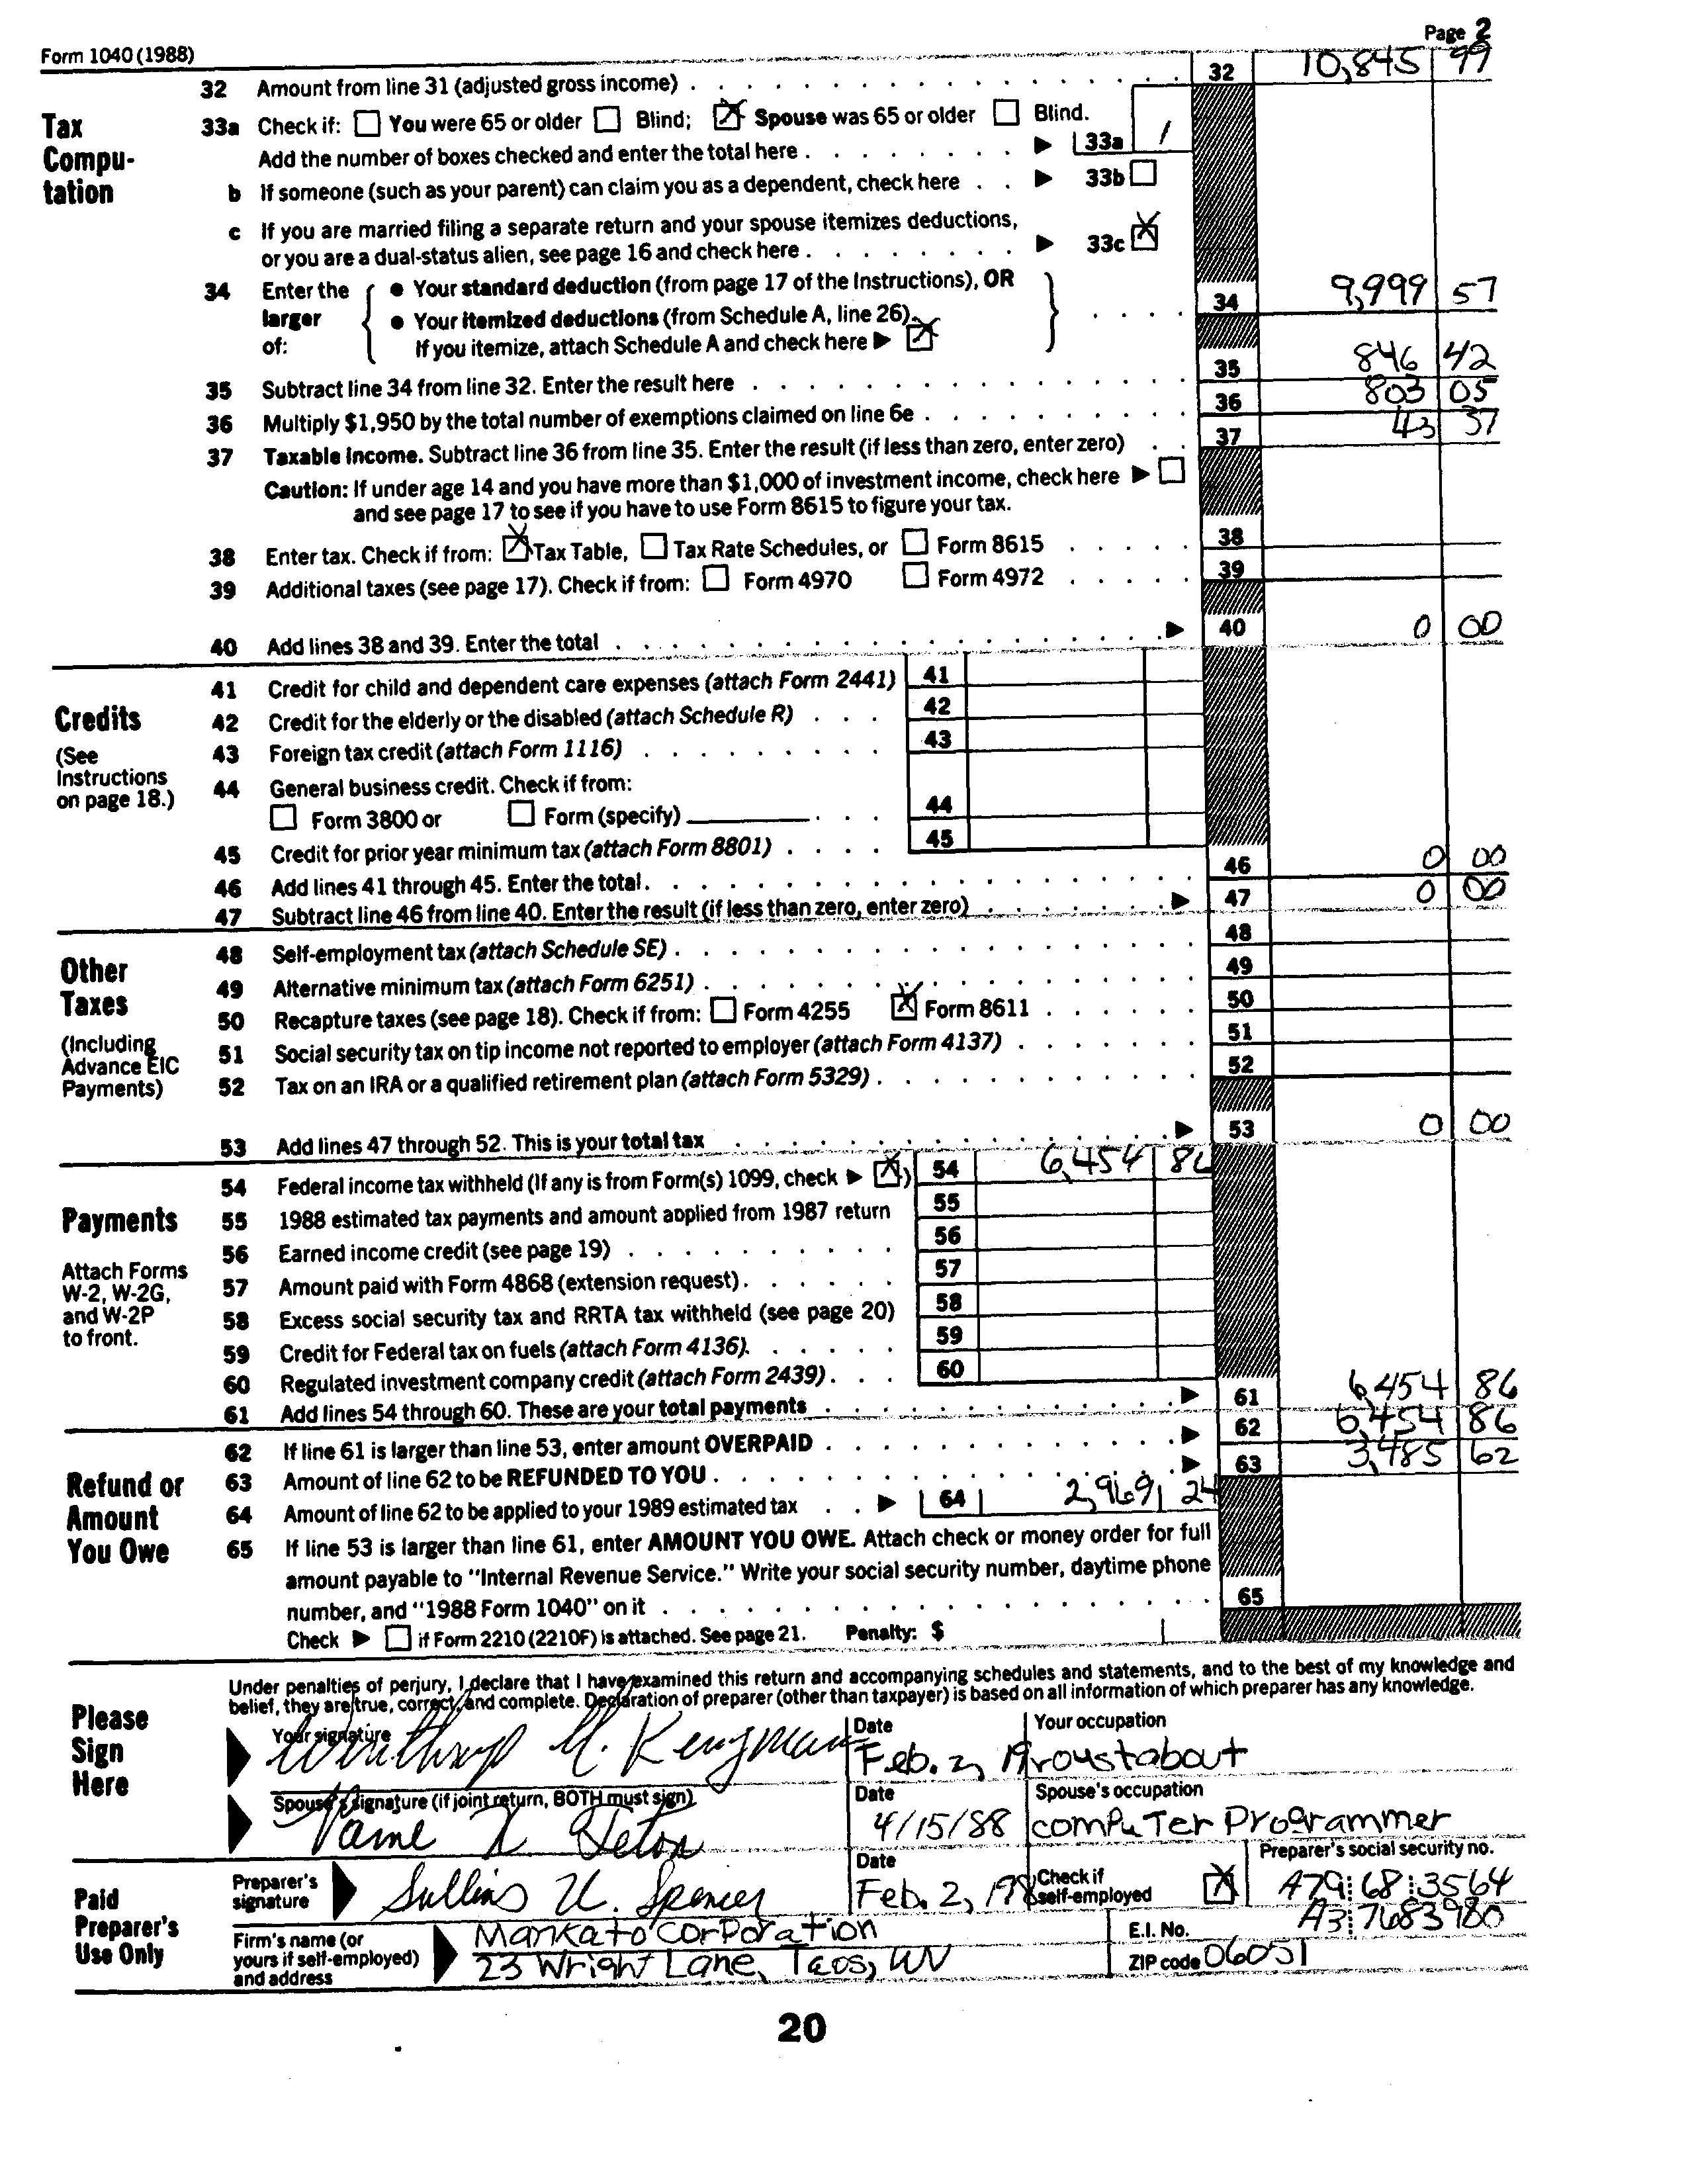 Form 1040 (1988) Page 2
32 Amount from line 31 (adjusted gross income) 32 10,845 99
Tax Computation
33a Check if: You were 65 or older Blind; Spouse was 65 or older Blind.
Add the number of boxes checked and enter the total here 33a 1
b If someone (such as your parent) can claim you as a dependent, check here 33b
c If you are married filing a separate return and your spouse itemizes deductions,
or you are a dual-status alien, see page 16 and check here 33c
34 Enter the larger of: • Your standard deduction (from page 17 of the Instructions), OR
• Your itemized deductions (from Schedule A, line 26). 34 9,999 57
If you itemize, attach Schedule A and check here
35 Subtract line 34 from line 32. Enter the result here 35 846 42
36 Multiply $1,950 by the total number of exemptions claimed on line 6e 36 803 05
37 Taxable income. Subtract line 36 from line 35. Enter the result (if less than zero, enter zero) 37 43 37
Caution: If under age 14 and you have more than $1,000 of investment income, check here
and see page 17 to see if you have to use Form 8615 to figure your tax.
38 Enter tax. Check if from: Tax Table, Tax Rate Schedules, or Form 8615 38
39 Additional taxes (see page 17). Check if from: Form 4970 Form 4972 39
40 Add lines 38 and 39. Enter the total 40 0 00
Credits
(See Instructions on page 18.)
41 Credit for child and dependent care expenses (attach Form 2441) 41
42 Credit for the elderly or the disabled (attach Schedule R) 42
43 Foreign tax credit (attach Form 1116) 43
44 General business credit. Check if from:
Form 3800 or Form (specify) 44
45 Credit for prior year minimum tax (attach Form 8801) 45
46 Add lines 41 through 45. Enter the total. 46 0 00
47 Subtract line 46 from line 40. Enter the result (if less than zero, enter zero) 47 0 00
Other Taxes
(Including Advance EIC Payments)
48 Self-employment tax (attach Schedule SE) 48
49 Alternative minimum tax (attach Form 6251) 49
50 Recapture taxes (see page 18). Check if from: Form 4255 Form 8611 50
51 Social security tax on tip income not reported to employer (attach Form 4137) 51
52 Tax on an IRA or a qualified retirement plan (attach Form 5329) 52
53 Add lines 47 through 52. This is your total tax 53 0 00
Payments
Attach Forms W-2, W-2G, and W-2P to front.
54 Federal income tax withheld (If any is from Form(s) 1099, check ) 54 6,454 86
55 1988 estimated tax payments and amount applied from 1987 return 55
56 Earned income credit (see page 19) 56
57 Amount paid with Form 4868 (extension request) 57
58 Excess social security tax and RRTA tax withheld (see page 20) 58
59 Credit for Federal tax on fuels (attach Form 4136). 59
60 Regulated investment company credit (attach Form 2439) 60
61 Add lines 54 through 60. These are your total payments 61 6,454 86
62 If line 61 is larger than line 53, enter amount OVERPAID 62 6,454 86
Refund or Amount You Owe
63 Amount of line 62 to be REFUNDED TO YOU 63 3,485 62
64 Amount of line 62 to be applied to your 1989 estimated tax 64 2,969 24
65 If line 53 is larger than line 61, enter AMOUNT YOU OWE. Attach check or money order for full
amount payable to "Internal Revenue Service." Write your social security number, daytime phone
number, and "1988 Form 1040" on it 65
Check if Form 2210 (2210F) is attached. See page 21. Penalty: $
Please Sign Here
Under penalties of perjury, I declare that I have examined this return and accompanying schedules and statements, and to the best of my knowledge and
belief, they are true, correct, and complete. Declaration of preparer (other than taxpayer) is based on all information of which preparer has any knowledge.
Your signature Date Your occupation
Winthrop M. Kengman Feb. 2, 19 roustabout
Spouse's signature (if joint return, BOTH must sign) Date Spouse's occupation
X 4/15/88 computer Programmer
Paid Preparer's Use Only
Preparer's signature Date Check if self-employed Preparer's social security no.
Sullins U. Spencer Feb. 2, 198 A79 68 3564
Firm's name (or yours if self-employed) and address
Mankato Corporation E.I. No. A3 7683980
23 Wright Lane, Taos, WV ZIP code 06051
20